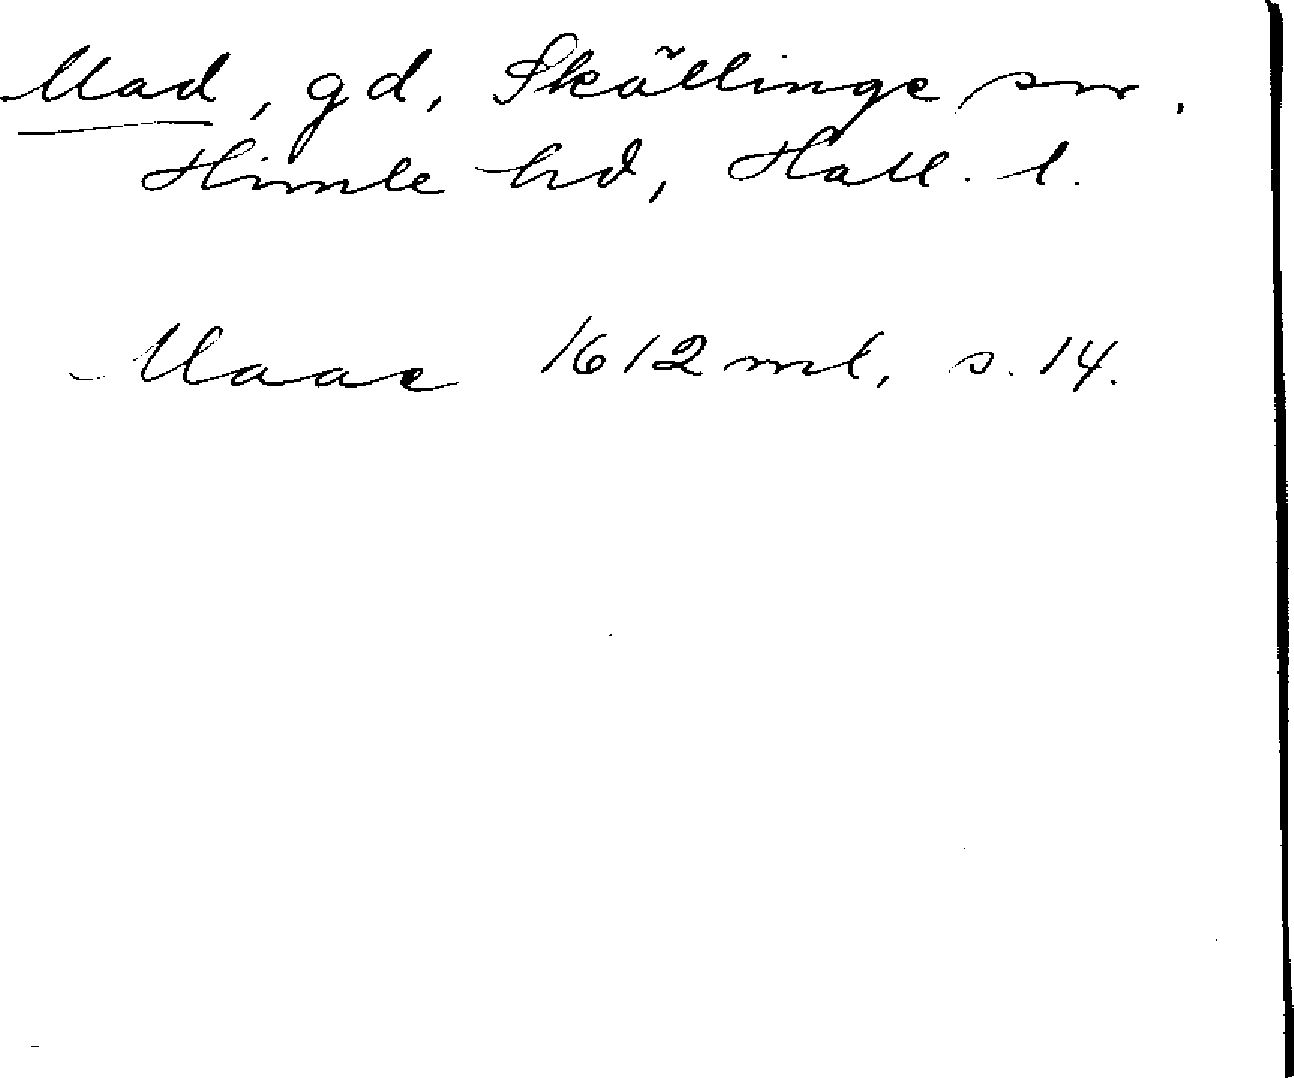 Mad, gd, Skällinge sn.
Himle hd, Hall. l.
Maae 1612 ml, s. 14.